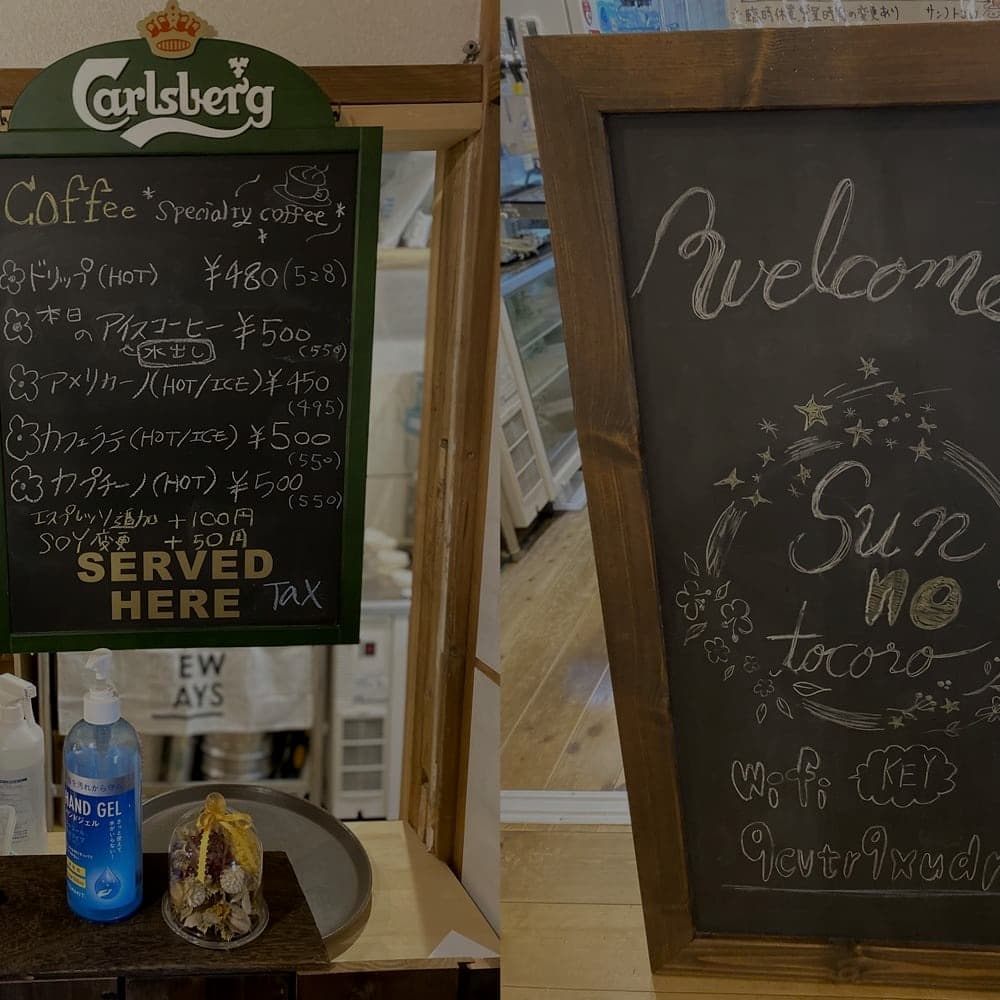 Carlsberg
Coffee
*Specialty coffee*
ドリップ(HOT) ¥480(528)
本日のアイスコーヒー ¥500
水出し (550)
アメリカーノ(HOT/ICE) ¥450
(495)
カフェラテ(HOT/ICE) ¥500
(550)
カプチーノ(HOT) ¥500
(550)
エスプレッソ追加 +100円
SOY変更 +50円
SERVED
HERE
TAX
EW
AYS
HAND GEL
ハンドジェル
臨時休業、営業時間の変更あり
welcome
Sun
no
tocoro
wifi KEY
9cvtr9xud